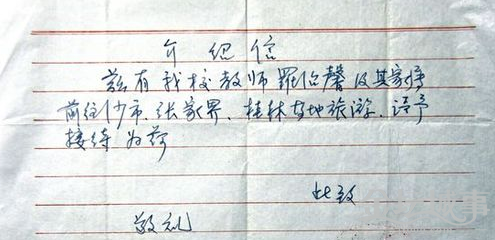 介绍信
兹有我校教师罗伯馨及其家属
前往沙市、张家界、桂林等地旅游、请予
接待为荷
此致
敬礼